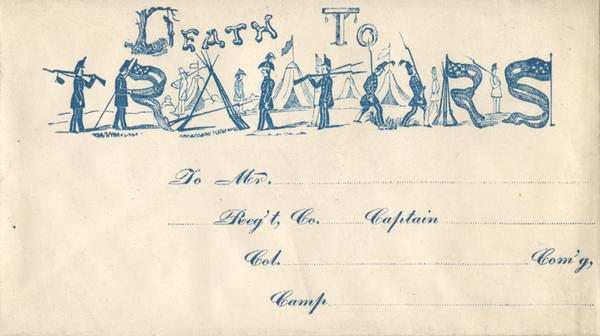 DEATH TO
TRAITORS
To Mr.
Reg't, Co. Captain
Col. Com'g,
Camp